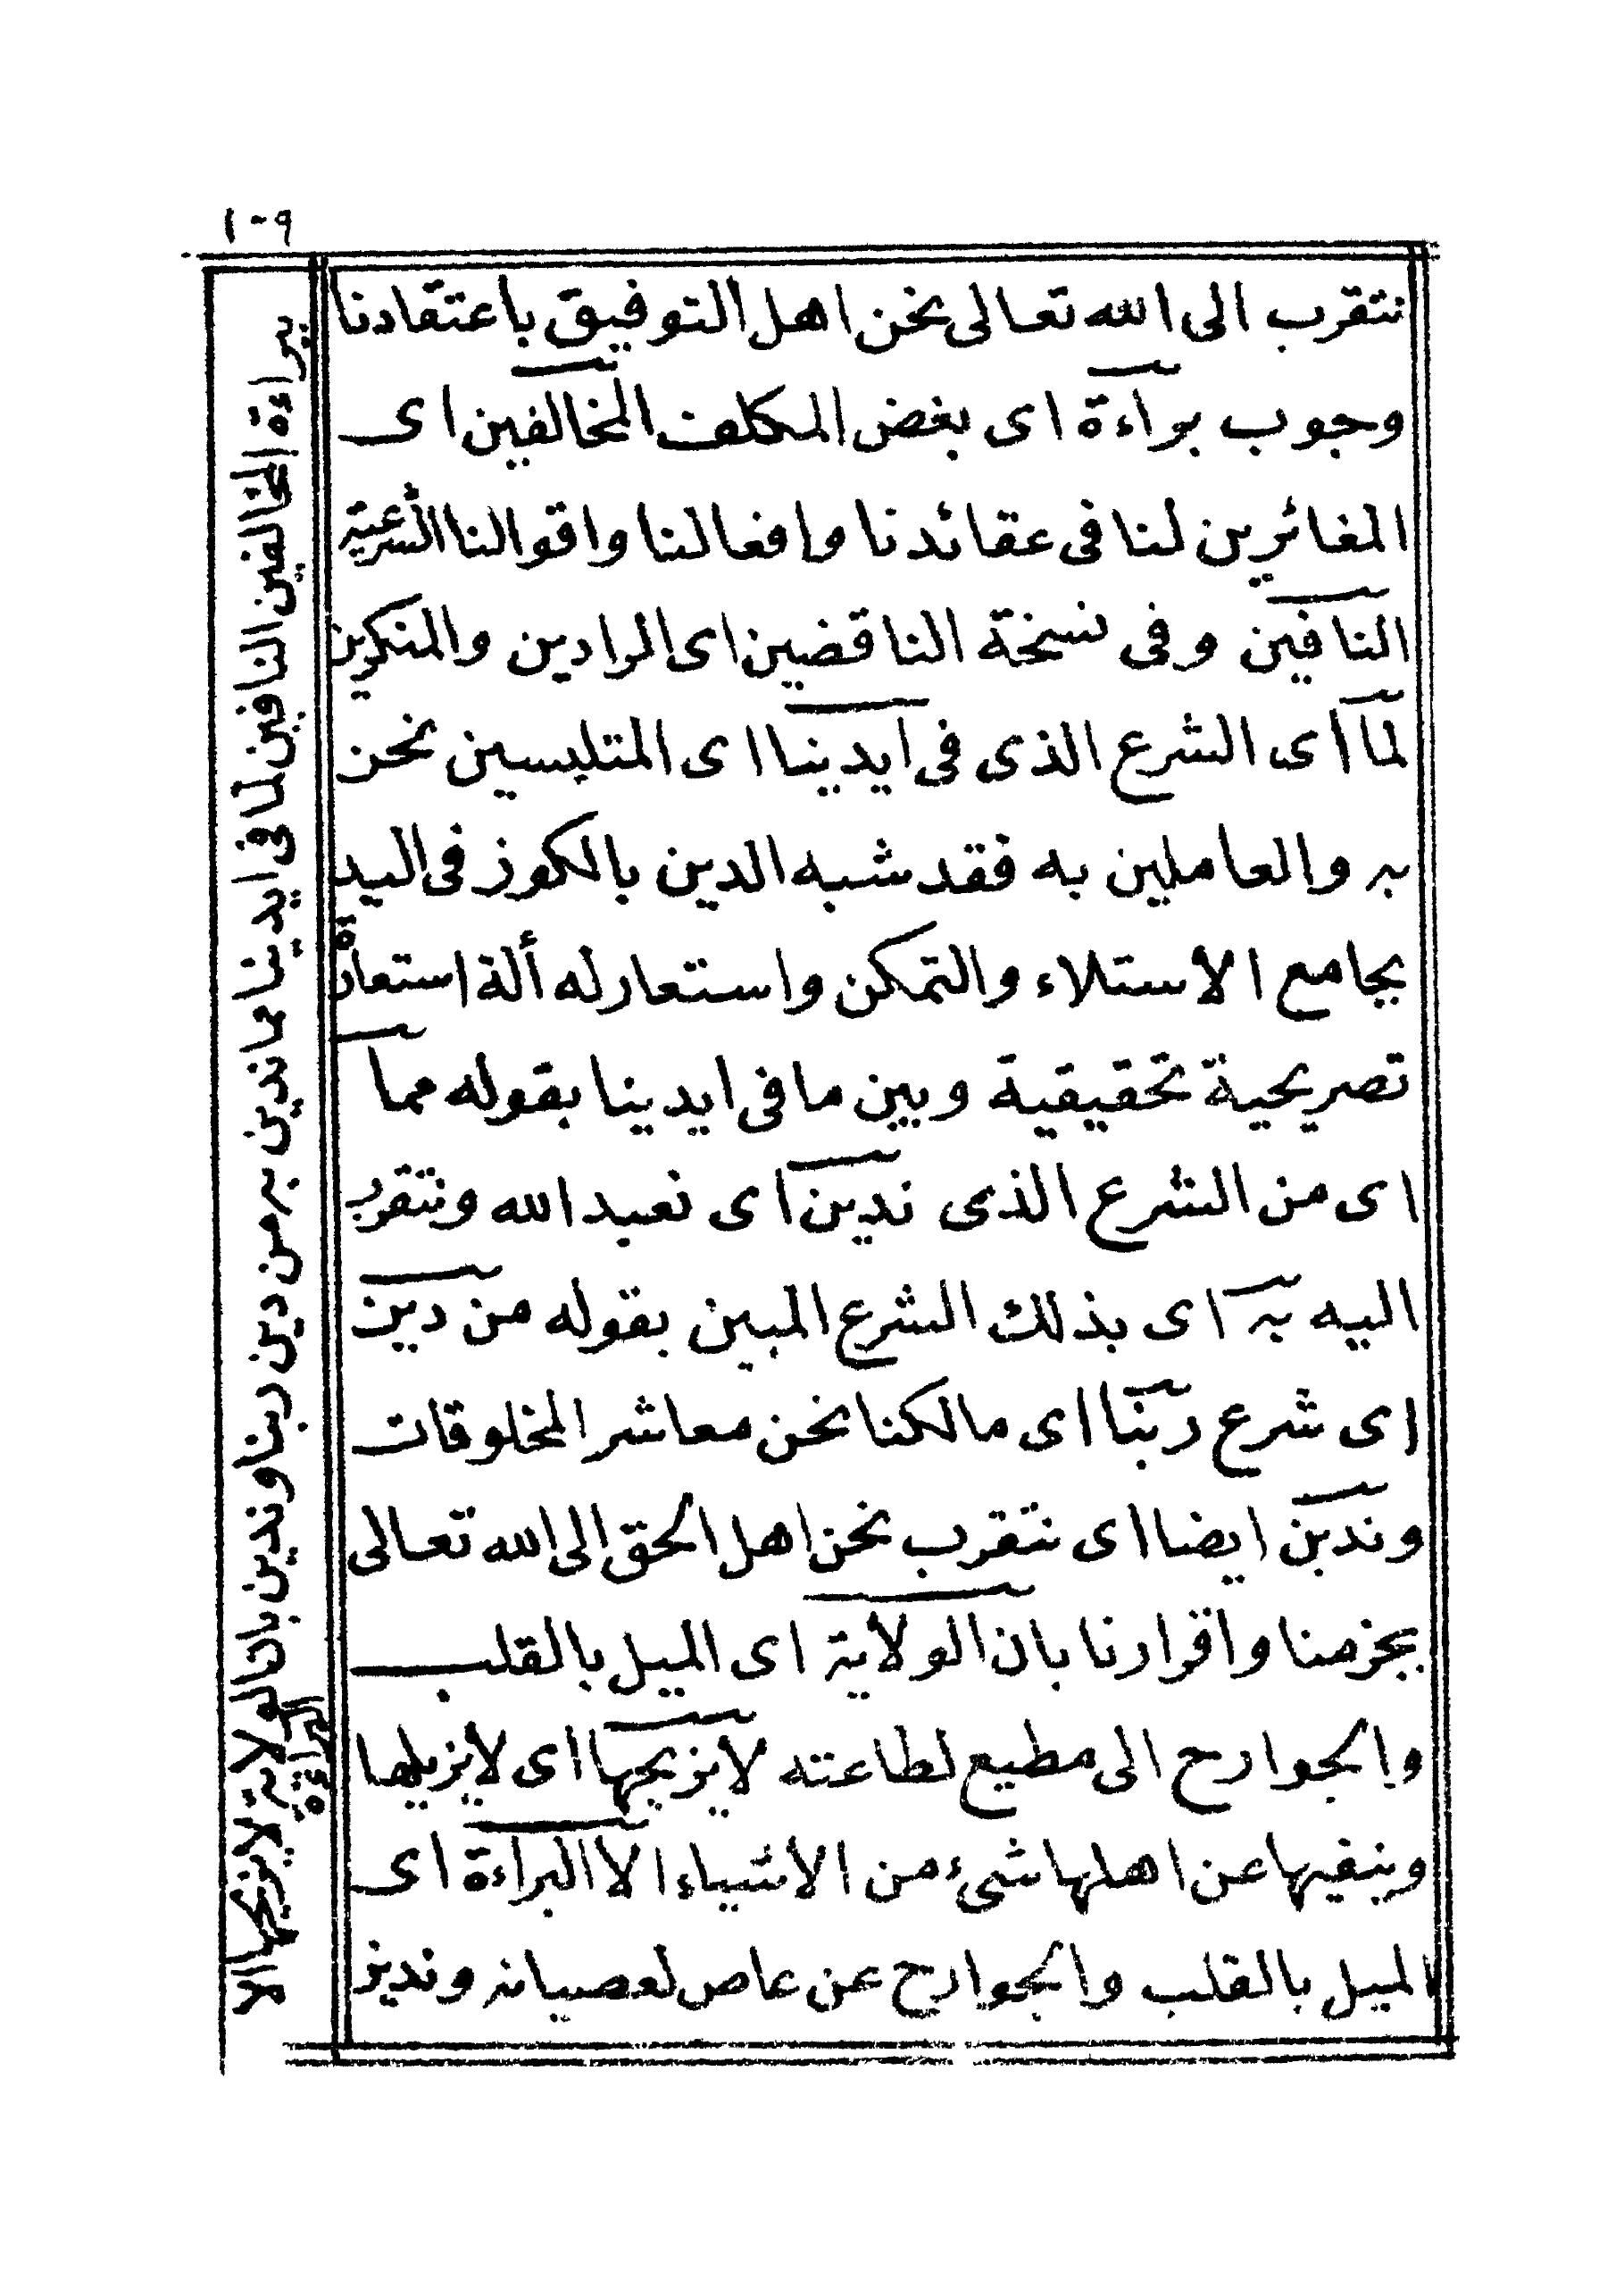 ١٠٩
نتقرب الى الله تعالى نحن اهل التوفيق باعتقادنا
وجوب براءة اى بغض المكلف المخالفين اى
المغائرين لنا فى عقائدنا وافعالنا واقوالنا الشرعية
النافين وفى نسخة الناقضين اى الرادين والمنكرين
لما اى الشرع الذى فى ايدينا اى المتلبسين نحن
به والعاملين به فقد شبه الدين بالكوز فى اليد
بجامع الاستلاء والتمكن واستعار له ألة استعارة
تصريحية تحقيقية وبين ما فى ايدينا بقوله مما
اى من الشرع الذى ندين اى نعبد الله ونتقرب
اليه به اى بذلك الشرع المبين بقوله من دين
اى شرع ربنا اى مالكنا نحن معاشر المخلوقات
وندين ايضا اى نتقرب نحن اهل الحق الى الله تعالى
بجزمنا واقرارنا بان الولاية اى الميل بالقلب
والجوارح الى مطيع لطاعته لايزيحها اى لايزيلها
وينفيها عن اهلها شىء من الاشياء الا البراءة اى
الميل بالقلب والجوارح عن عاص لعصيانه وندين
براءة المخالفين النافين لما فى ايدينا مما ندين به من دين ربنا وندين بان الولاية لايزيحها الا
البراءة